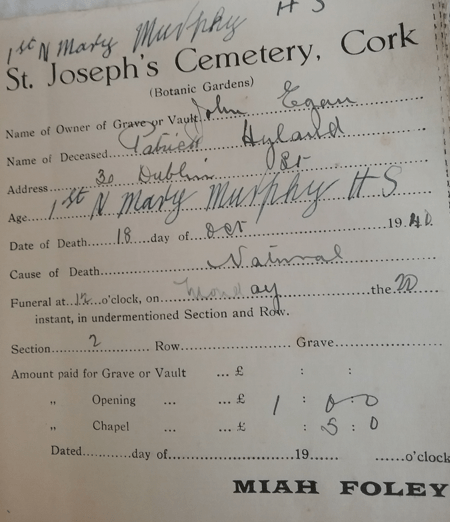 1st N Mary Murphy H S
St. Joseph's Cemetery, Cork
(Botanic Gardens)
Name of Owner of Grave or Vault John Egan
Name of Deceased Patrick Hyland
Address 30 Dublin St
Age 1st N Mary Murphy H S
Date of Death 18 day of Oct 1940
Cause of Death Natural
Funeral at 12 o'clock, on Monday the 20
instant, in undermentioned Section and Row.
Section 2 Row Grave
Amount paid for Grave or Vault ... £ : :
„ Opening ... ... £ 1 : 0 : 0
„ Chapel ... ... £ : 5 : 0
Dated day of 19 o'clock
MIAH FOLEY